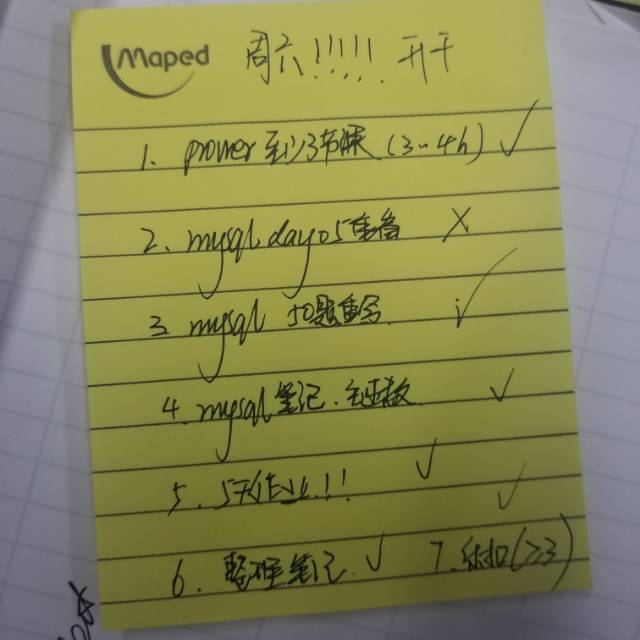 Maped
周六!!!!! 开干
1、power 至少3节课 (3~4h) ✓
2、mysql day05重看 ✗
3 mysql 50题重写. ✓
4. mysql笔记.
5. 5天作业!! ✓
6. 整理笔记. ✓ 7.力扣(≥3) ✓